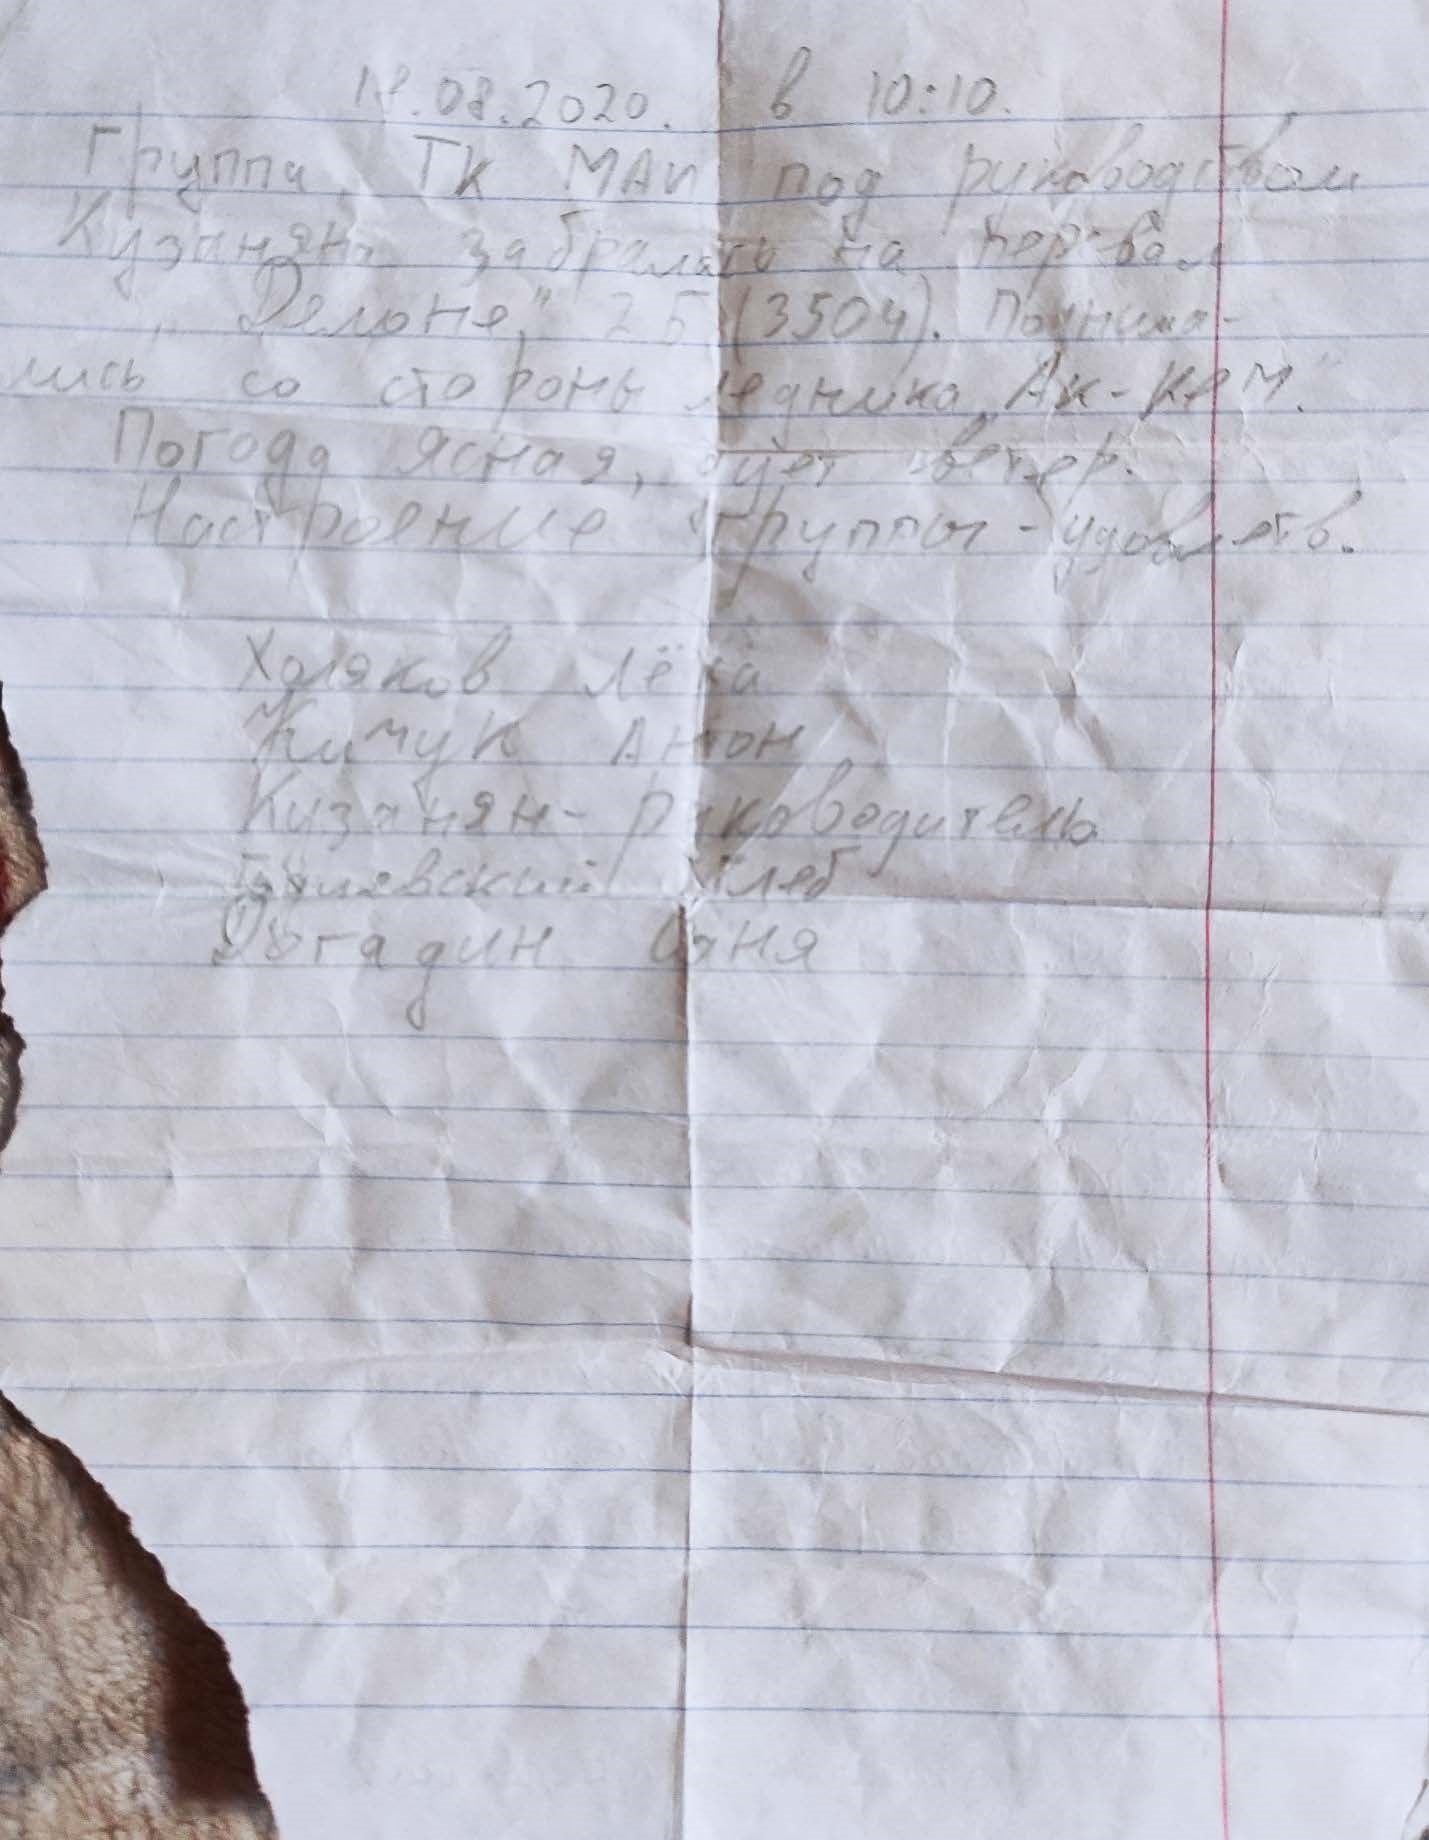 18.08.2020. в 10:10.
Группа, ТК МАИ под руководством
Кузаняна забралась на перевал
„Делоне," 2Б (3504). Поднима-
лись со стороны ледника „Ак-Кем".
Погода ясная, дует ветер.
Настроение группы - удовлетв.
Холяков Лёха
Кимчук Антон
Кузанян - руководитель
Глеб
Догадин Саня